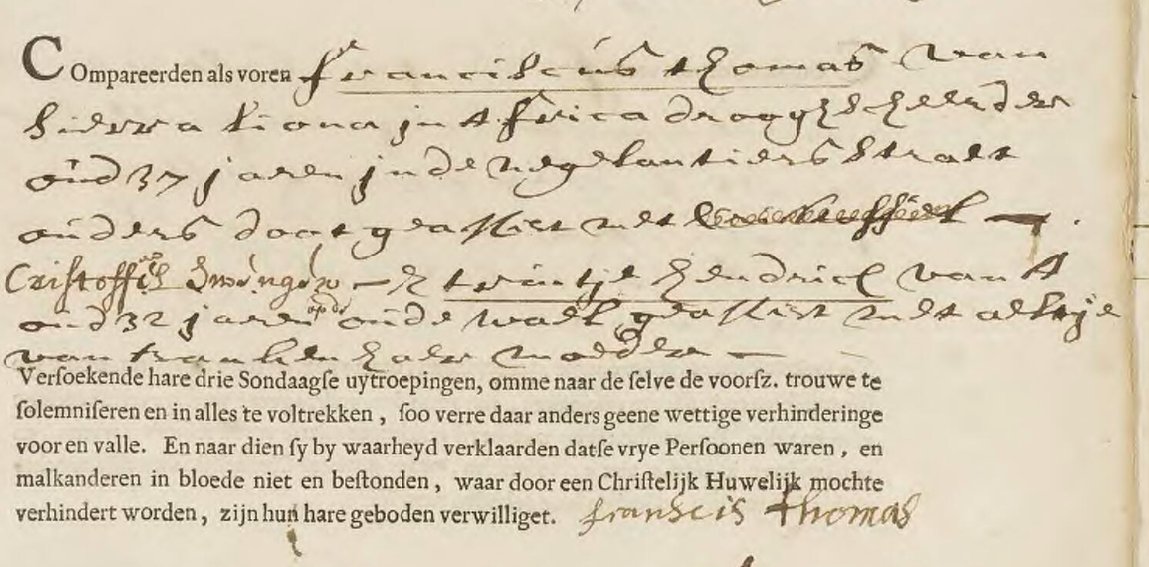 Compareerden als voren franciscus thomas van
sierra liona in Africa drooghscheerder
oud 37 jaren in de negelantiers straet
ouders doot geassist met
Cristoffel & trintje hendrick van A
oud 32 jaren op de oude wael geassist met aeltje
van haer moeder
Versoekende hare drie Sondaagse uytroepingen, omme naar de selve de voorsz. trouwe te
solemniseren en in alles te voltrekken, soo verre daar anders geene wettige verhinderinge
voor en valle. En naar dien sy by waarheyd verklaarden datse vrye Persoonen waren, en
malkanderen in bloede niet en bestonden, waar door een Christelijk Huwelijk mochte
verhindert worden, zijn hun hare geboden verwilliget. franscis thomas